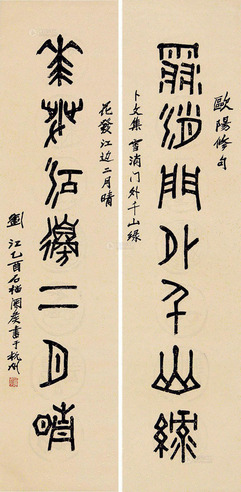 歐陽修句
雪消門外千山綠
卜文集雪消门外千山綠
花發江邊二月晴
花發江边二月晴
劉江乙酉
書于杭州